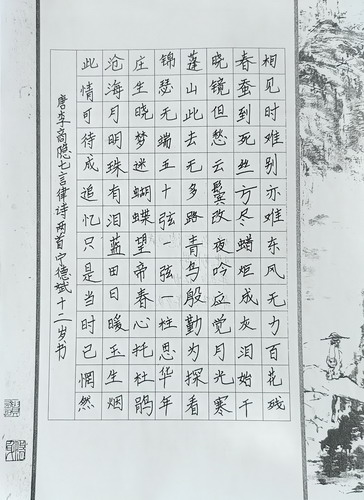 相见时难别亦难东风无力百花残
春蚕到死丝方尽蜡炬成灰泪始干
晓镜但愁云鬓改夜吟应觉月光寒
蓬山此去无多路青鸟殷勤为探看
锦瑟无端五十弦一弦一柱思华年
庄生晓梦迷蝴蝶望帝春心托杜鹃
沧海月明珠有泪蓝田日暖玉生烟
此情可待成追忆只是当时已惘然
唐李商隐七言律诗两首宁德斌十二岁书